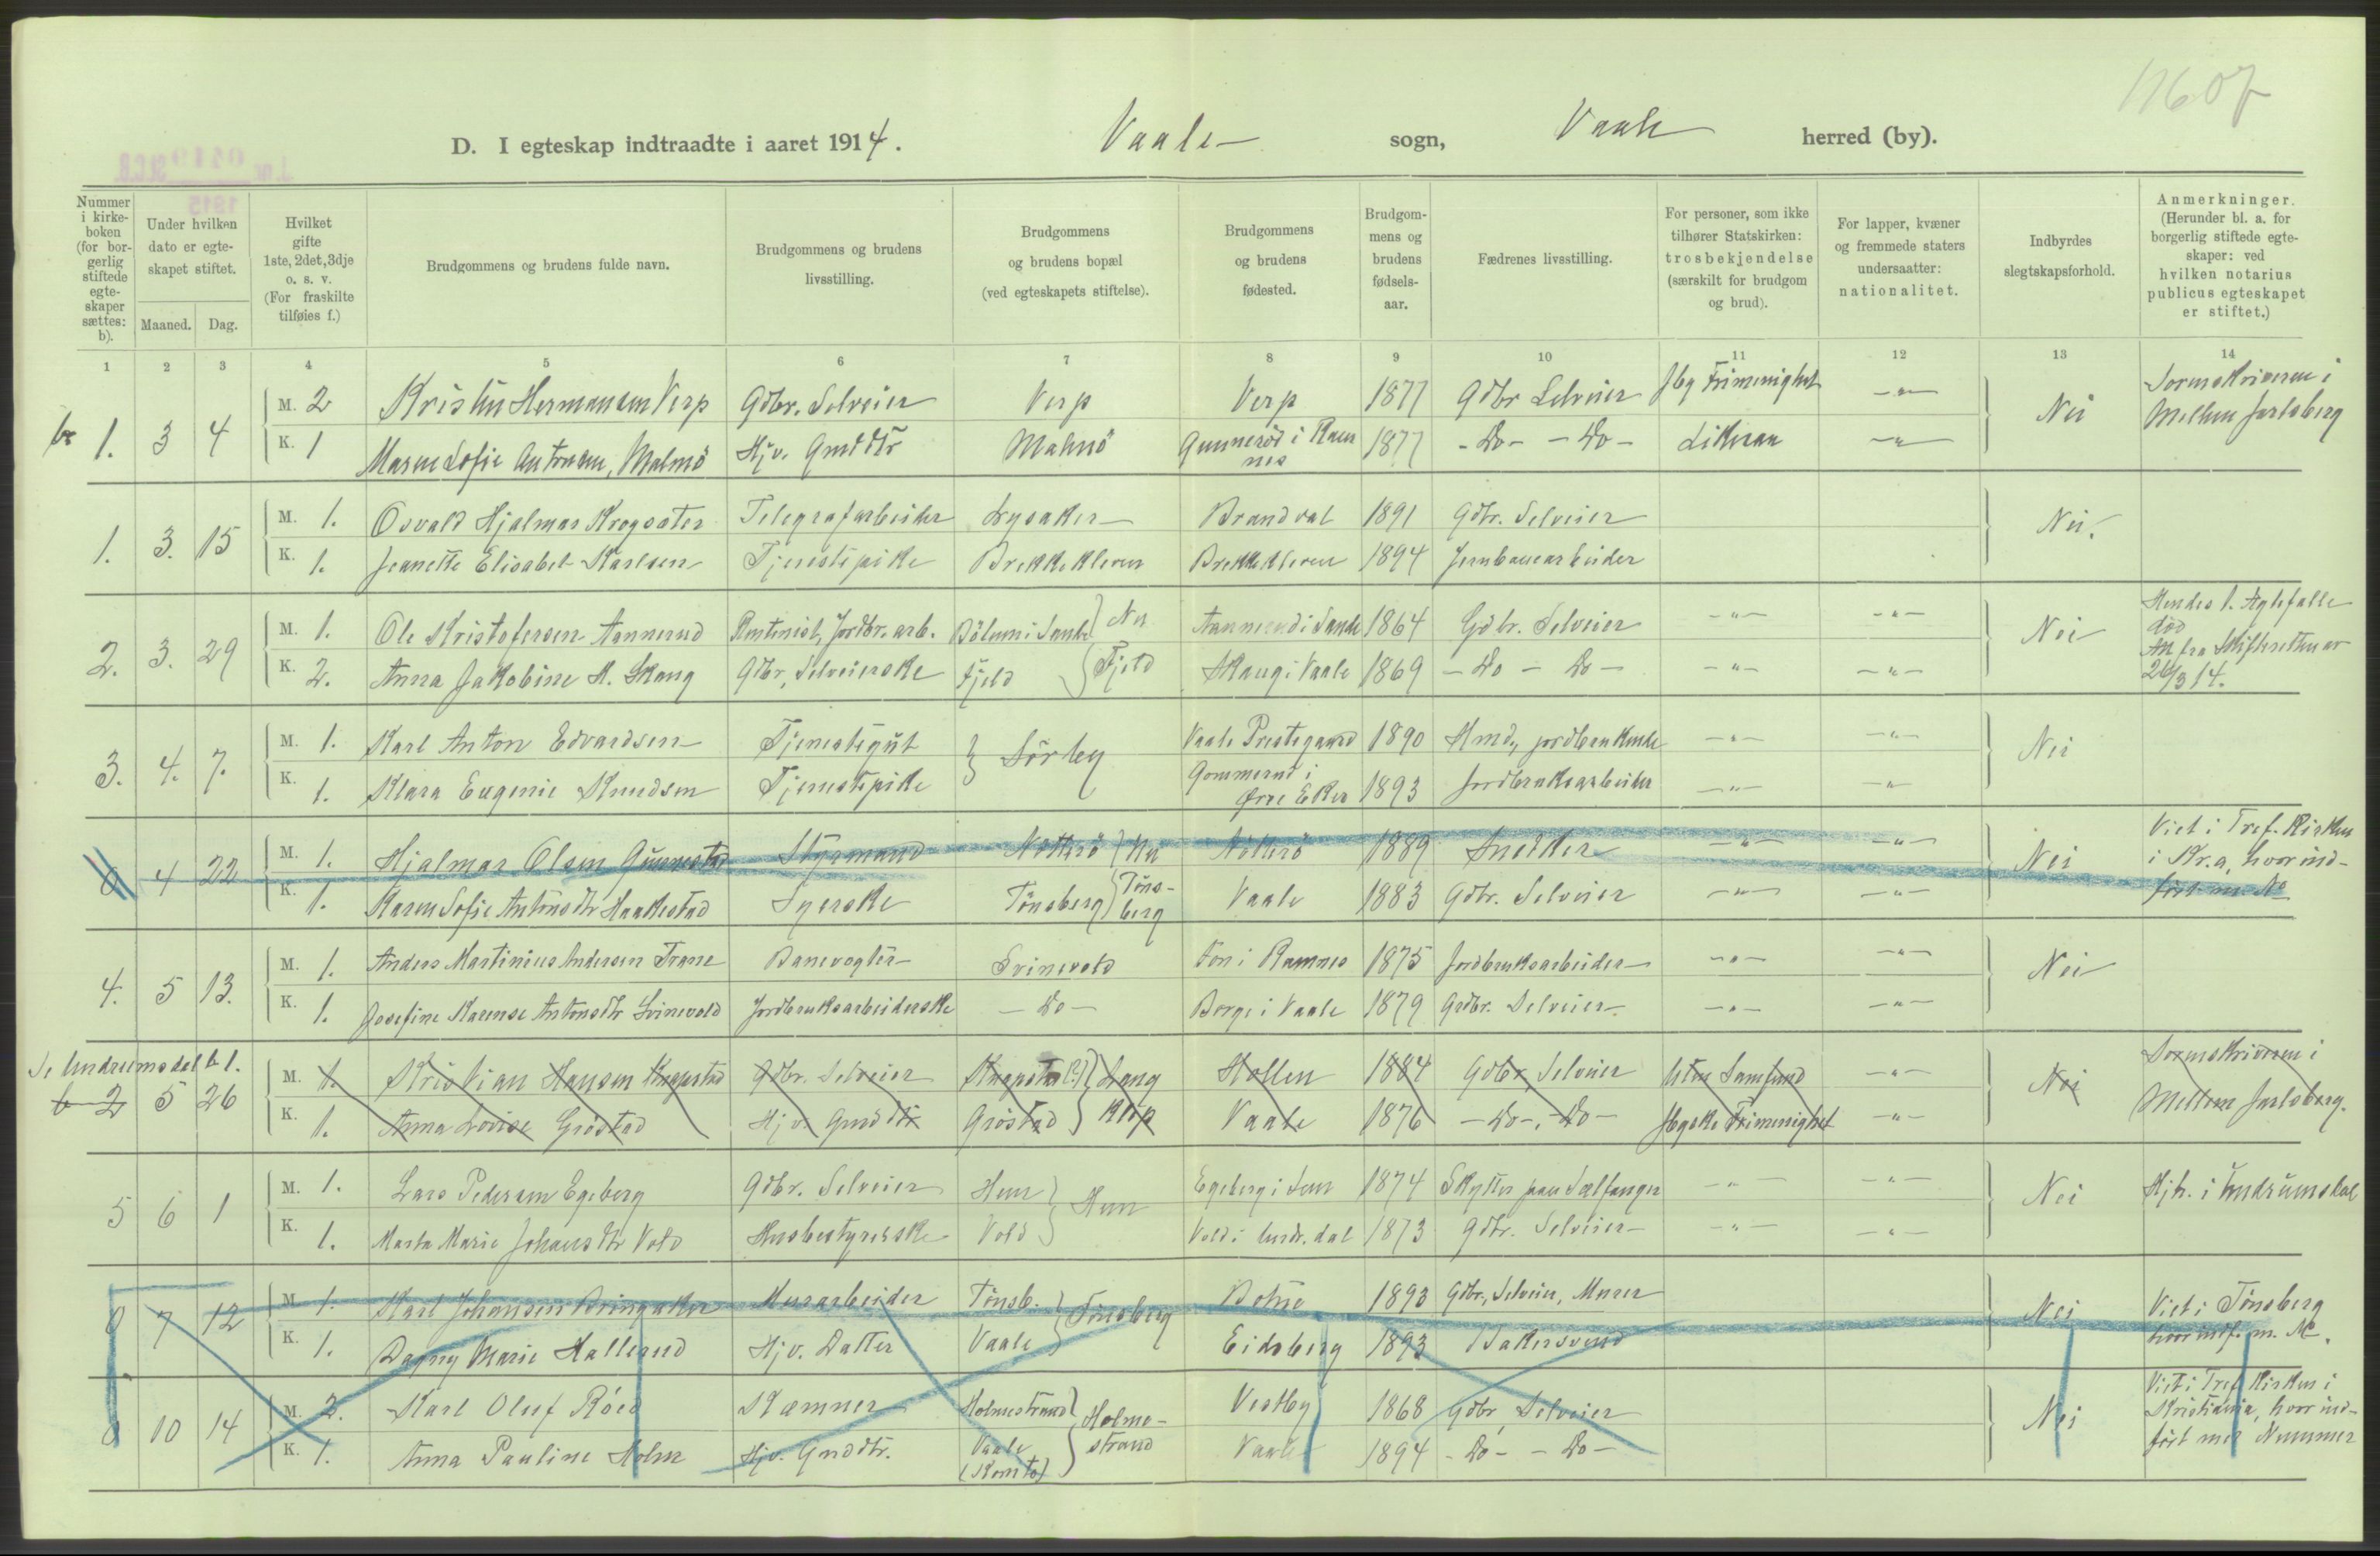 11607
D. I egteskap indtraadte i aaret 1914. Vaale sogn, Vaale herred (by).
Nummer i kirkeboken (for borgerlig stiftede egteskaper sættes: b).
Under hvilken dato er egteskapet stiftet.
Maaned. Dag.
Hvilket gifte 1ste, 2det, 3dje o. s. v. (For fraskilte tilføies f.)
Brudgommens og brudens fulde navn.
Brudgommens og brudens livsstilling.
Brudgommens og brudens bopæl (ved egteskapets stiftelse).
Brudgommens og brudens fødested.
Brudgommens og brudens fødselsaar.
Fædrenes livsstilling.
For personer, som ikke tilhører Statskirken: trosbekjendelse (særskilt for brudgom og brud).
For lapper, kvæner og fremmede staters undersaatter: nationalitet.
Indbyrdes slegtskapsforhold.
Anmerkninger. (Herunder bl. a. for borgerlig stiftede egteskaper: ved hvilken notarius publicus egteskapet er stiftet.)
1 2 3 4 5 6 7 8 9 10 11 12 13 14
b 1. 3 4 M. 2 Kristin Hermansen Verp Gdbr. Selveier Verp Verp 1877 Gdbr Selveier Jbg Frimenighet -"- Nei Sorenskriveren i
K. 1 Maren Sofie Antonsen, Malmö Hjv. Gmd dtr Malmö Gunnerød i Ramnes 1877 - Do - - Do - Likesaa -"- Mellem Jarlsberg
1. 3. 15 M. 1. Osvald Hjalmar Krogsater Telegrafarbeider Lysaker Brandval 1891 Gdbr. Selveier Nei.
K. 1. Jeanette Elisabet Karlsen Tjenestepike Brekkekleven Brekkekleven 1894 Jernbanearbeider
2. 3. 29 M. 1. Ole Kristofersen Aannerud Rentenist, Jordbr. arb. Bölum i Sande } Nu Aannerud i Sande 1864 Gdbr. Selveier -"- -"- Nei Hendes 1. Egtefælle död
K. 2. Anna Jakobine H. Skaug Gdbr, Selveierske Fjeld } Fjeld Skaug i Vaale 1869 - Do - Do - -"- -"- Att fra Skifteretten av 26/3 14.
3. 4. 7. M. 1. Karl Anton Edvardsen Tjenestegut } Sörby Vaale Prestegaard 1890 Hmd, jordbrukende -"- -"- Nei
K. 1. Klara Eugenie Knudsen Tjenestepike Gommerud i Øvre Eker 1893 Jordbruksarbeider -"- -"-
0 4 22 M. 1. Hjalmar Olsen Gunnestad Styrmand Nötterö } Nu Nötterö 1889 Snekker -"- -"- Nei Viet i Tref. Kirken
K. 1. Karen Sofie Antonsdtr Haakestad Syerske Tönsberg } Töns-berg Vaale 1883 Gdbr. Selveier -"- -"- i Kr.a, hvor ind-ført m. No
4. 5 13. M. 1. Anders Martinius Andersen Trane Banevogter Svinevold Fon i Ramnes 1875 Jordbruksarbeider -"- -"- Nei
K. 1. Josefine Karense Antonsdtr Svinevold Jordbruksarbeiderske - Do - Borge i Vaale 1879 Gdbr. Selveier -"- -"-
Se Undrumsdal b 1.
b 2 5 26 M. 1. Kristian Hansen Knapstad Gdbr. Selveier Knapstad } Lang Hollen 1884 Gdbr, Selveier Uten Samfund -"- Nei Sorenskriveren i
K. 1. Anna Lovise Gröstad Hjv. Gmd dtr Gröstad } Klop Vaale 1876 - Do -, - Do - Jbgske Frimenighet -"- Mellem Jarlsberg.
5 6 1 M. 1. Lars Pedersen Egeberg Gdbr. Selveier Hem } Hem Egeberg i Sem 1874 Skytter paa Sælfanger -"- -"- Nei Hjh. i Undrumsdal
K. 1. Marta Marie Johansdtr Vold Husbestyrerske Vold Vold i Undr. dal 1873 Gdbr. Selveier -"- -"-
0 7 12 M. 1. Karl Johansen Bringaker Murarbeider Tönsb. } Tönsberg Botne 1893 Gdbr, Selveier, Murer Nei Viet i Tönsberg
K. 1. Dagny Marie Hallerud Hjv. Datter Vaale Eidsberg 1893 Bakersvend hvor indf. m. No.
0 10 14 M. 2. Karl Oluf Röed Kæmner Holmestrand } Holme- Vestby 1868 Gdbr, Selveier Nei Viet i Tref Kirken i Kristiania, hvor ind-
K. 1. Anna Pauline Holm Hjv. Gmd dtr. Vaale (Komto) } strand Vaale 1894 - Do - - Do - ført med Nummer